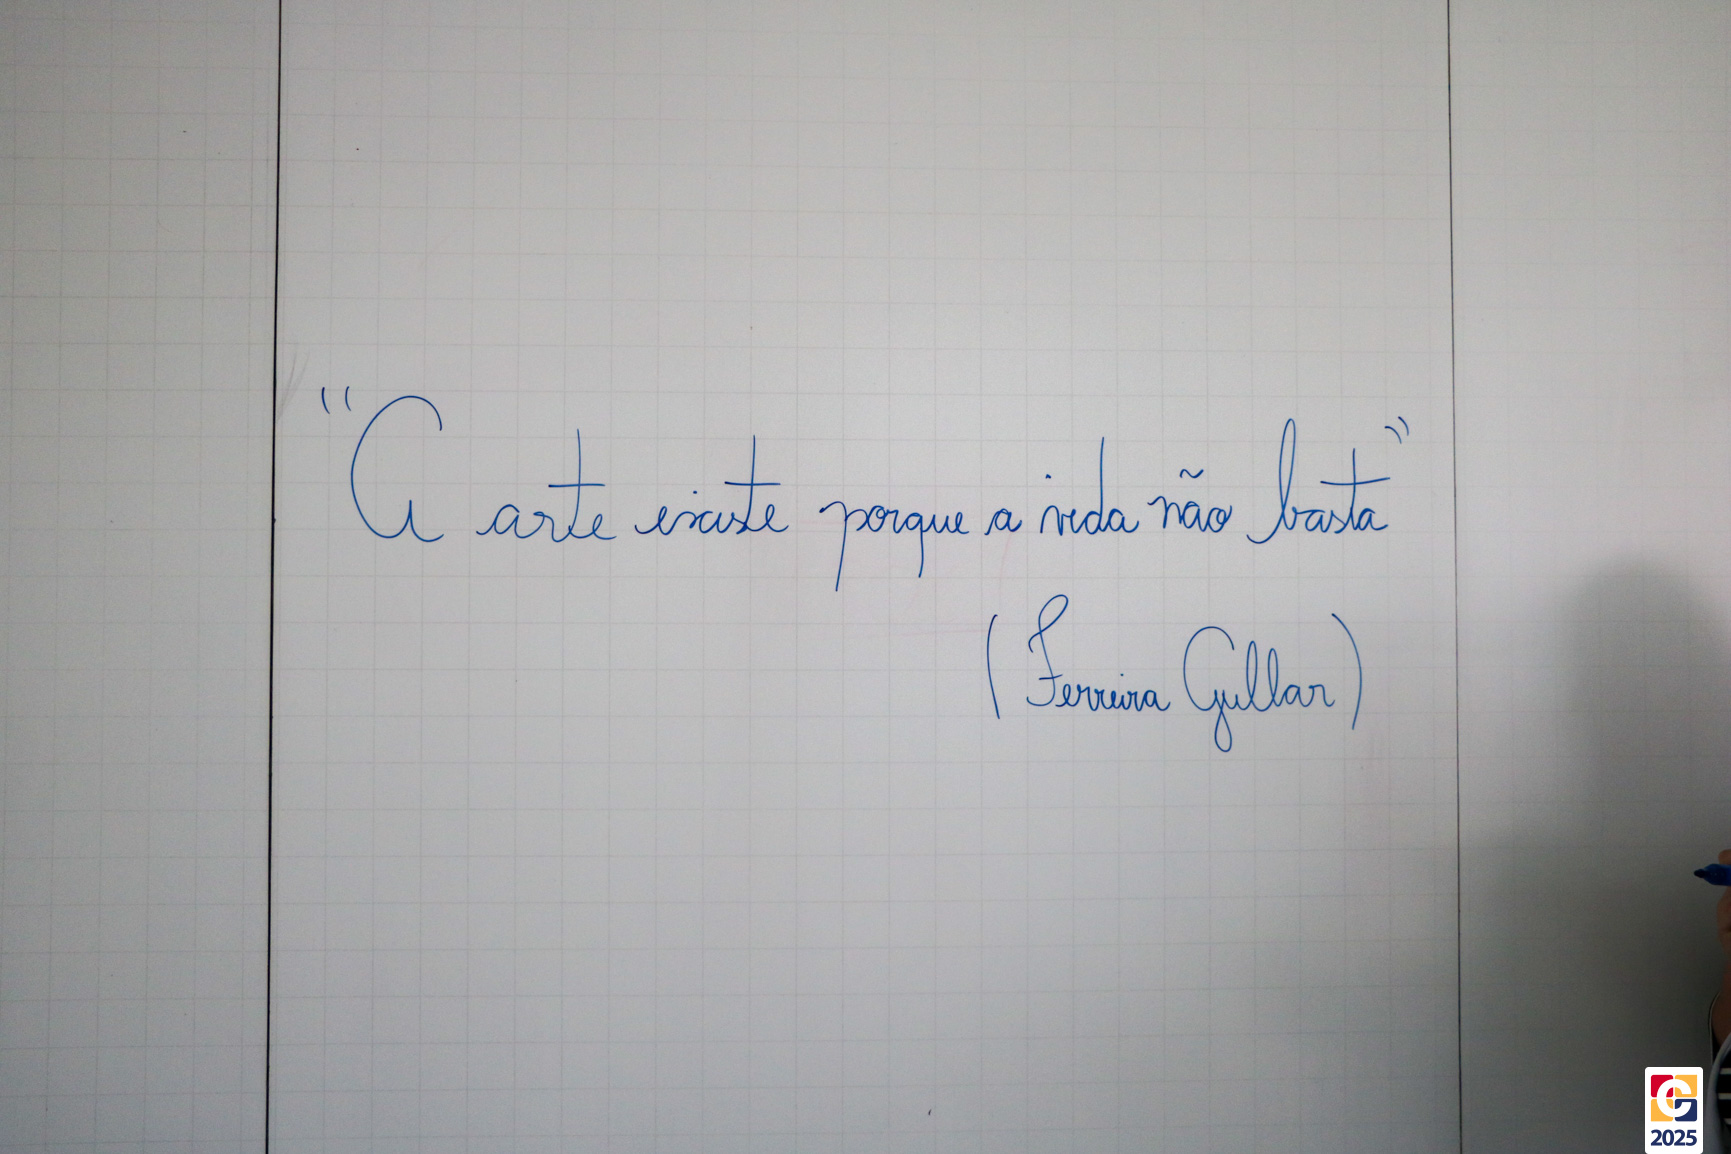 "A arte existe porque a vida não basta"
(Ferreira Gullar)
2025